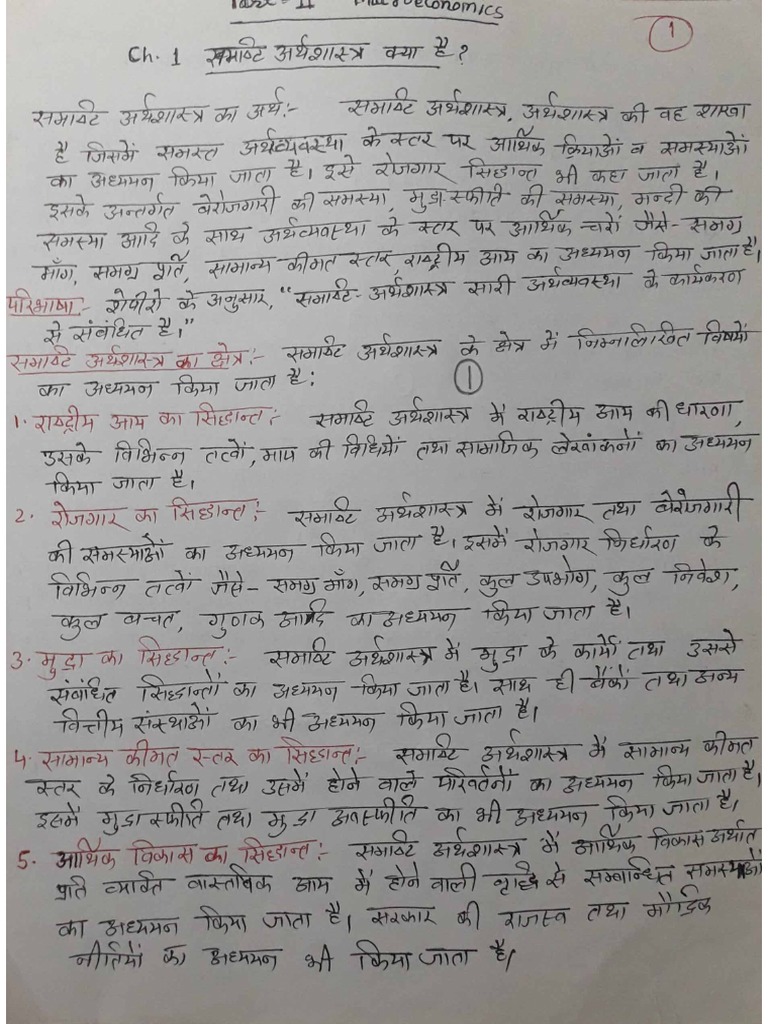 Part - II Macroeconomics
1
Ch. 1 समष्टि अर्थशास्त्र क्या है?
समष्टि अर्थशास्त्र का अर्थ:- समष्टि अर्थशास्त्र, अर्थशास्त्र की वह शाखा
है जिसमें समस्त अर्थव्यवस्था के स्तर पर आर्थिक क्रियाओं व समस्याओं
का अध्ययन किया जाता है। इसे रोजगार सिद्धान्त भी कहा जाता है।
इसके अन्तर्गत बेरोजगारी की समस्या, मुद्रा-स्फीति की समस्या, मन्दी की
समस्या आदि के साथ अर्थव्यवस्था के स्तर पर आर्थिक चरों जैसे- समग्र
माँग, समग्र पूर्ति, सामान्य कीमत स्तर, राष्ट्रीय आय का अध्ययन किया जाता है।
परिभाषा:- शेपीरो के अनुसार, "समष्टि-अर्थशास्त्र सारी अर्थव्यवस्था के कार्यकरण
से संबंधित है।"
समष्टि अर्थशास्त्र का क्षेत्र:- समष्टि अर्थशास्त्र के क्षेत्र में निम्नलिखित विषयों
का अध्ययन किया जाता है:
1
1. राष्ट्रीय आय का सिद्धान्त:- समष्टि अर्थशास्त्र में राष्ट्रीय आय की धारणा,
उसके विभिन्न तत्वों, माप की विधियों तथा सामाजिक लेखांकनों का अध्ययन
किया जाता है।
2. रोजगार का सिद्धान्त:- समष्टि अर्थशास्त्र में रोजगार तथा बेरोजगारी
की समस्याओं का अध्ययन किया जाता है। इसमें रोजगार निर्धारण के
विभिन्न तत्वों जैसे- समग्र माँग, समग्र पूर्ति, कुल उपभोग, कुल निवेश,
कुल बचत, गुणक आदि का अध्ययन किया जाता है।
3. मुद्रा का सिद्धान्त:- समष्टि अर्थशास्त्र में मुद्रा के कार्यों तथा उससे
संबंधित सिद्धान्तों का अध्ययन किया जाता है। साथ ही बैंकों तथा अन्य
वित्तीय संस्थाओं का भी अध्ययन किया जाता है।
4. सामान्य कीमत स्तर का सिद्धान्त:- समष्टि अर्थशास्त्र में सामान्य कीमत
स्तर के निर्धारण तथा उसमें होने वाले परिवर्तनों का अध्ययन किया जाता है।
इसमें मुद्रा स्फीति तथा मुद्रा अवस्फीति का भी अध्ययन किया जाता है।
5. आर्थिक विकास का सिद्धान्त:- समष्टि अर्थशास्त्र में आर्थिक विकास अर्थात
प्रति व्यक्ति वास्तविक आय में होने वाली वृद्धि से सम्बन्धित समस्याओं
का अध्ययन किया जाता है। सरकार की राजस्व तथा मौद्रिक
नीतियों का अध्ययन भी किया जाता है।